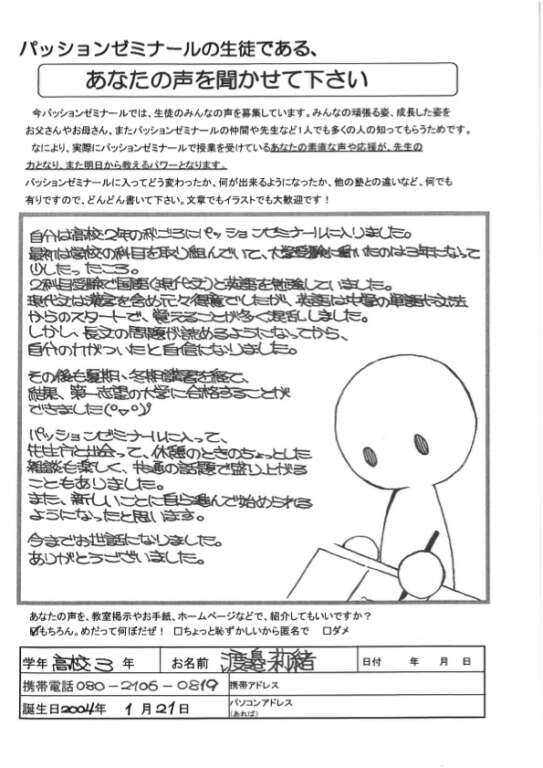 パッションゼミナールの生徒である、
あなたの声を聞かせて下さい
今パッションゼミナールでは、生徒のみんなの声を募集しています。みんなの頑張る姿、成長した姿を
お父さんやお母さん、またパッションゼミナールの仲間や先生など1人でも多くの人の知ってもらうためです。
なにより、実際にパッションゼミナールで授業を受けているあなたの素直な声や応援が、先生の
力となり、また明日から教えるパワーとなります。
パッションゼミナールに入ってどう変わったか、何が出来るようになったか、他の塾との違いなど、何でも
有りですので、どんどん書いて下さい。文章でもイラストでも大歓迎です！
自分は高校2年の秋ごろにパッションゼミナールに入りました。
最初は学校の科目を取り組んでいて、大学受験に動いたのは3年になって
少したったころ。
2科目受験で国語(現代文)と英語を勉強していました。
現代文は漢字を含め元々得意でしたが、英語は中学の単語や文法
からのスタートで、覚えることが多く混乱しました。
しかし、長文の問題が読めるようになってから、
自分の力がついたと自信になりました。
その後も夏期、冬期講習を経て、
結果、第一志望の大学に合格することが
できました(^▽^)/
パッションゼミナールに入って、
先生方と出会って、休憩のときのちょっとした
雑談も楽しくて、共通の話題で盛り上がる
こともありました。
また、新しいことに自ら進んで始められる
ようになったと思います。
今までお世話になりました。
ありがとうございました。
あなたの声を、教室掲示やお手紙、ホームページなどで、紹介してもいいですか？
☑もちろん。めだって何ぼだぜ！ □ちょっと恥ずかしいから匿名で □ダメ
学年 高校3 年 お名前 渡邉莉緒 日付 年 月 日
携帯電話 080-2106-0819 携帯アドレス
誕生日2004年 1月21日 パソコンアドレス
(あれば)